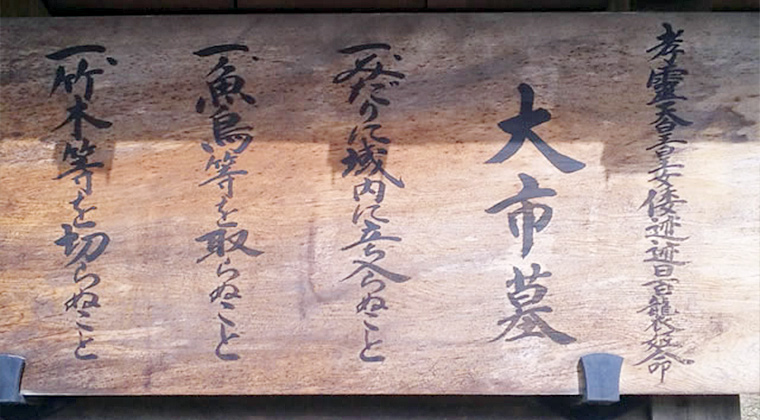 孝靈天皇皇女倭迹迹日百襲姫命
大市墓
一、みだりに域内に立ち入らぬこと
一、魚鳥等を取らぬこと
一、竹木等を切らぬこと